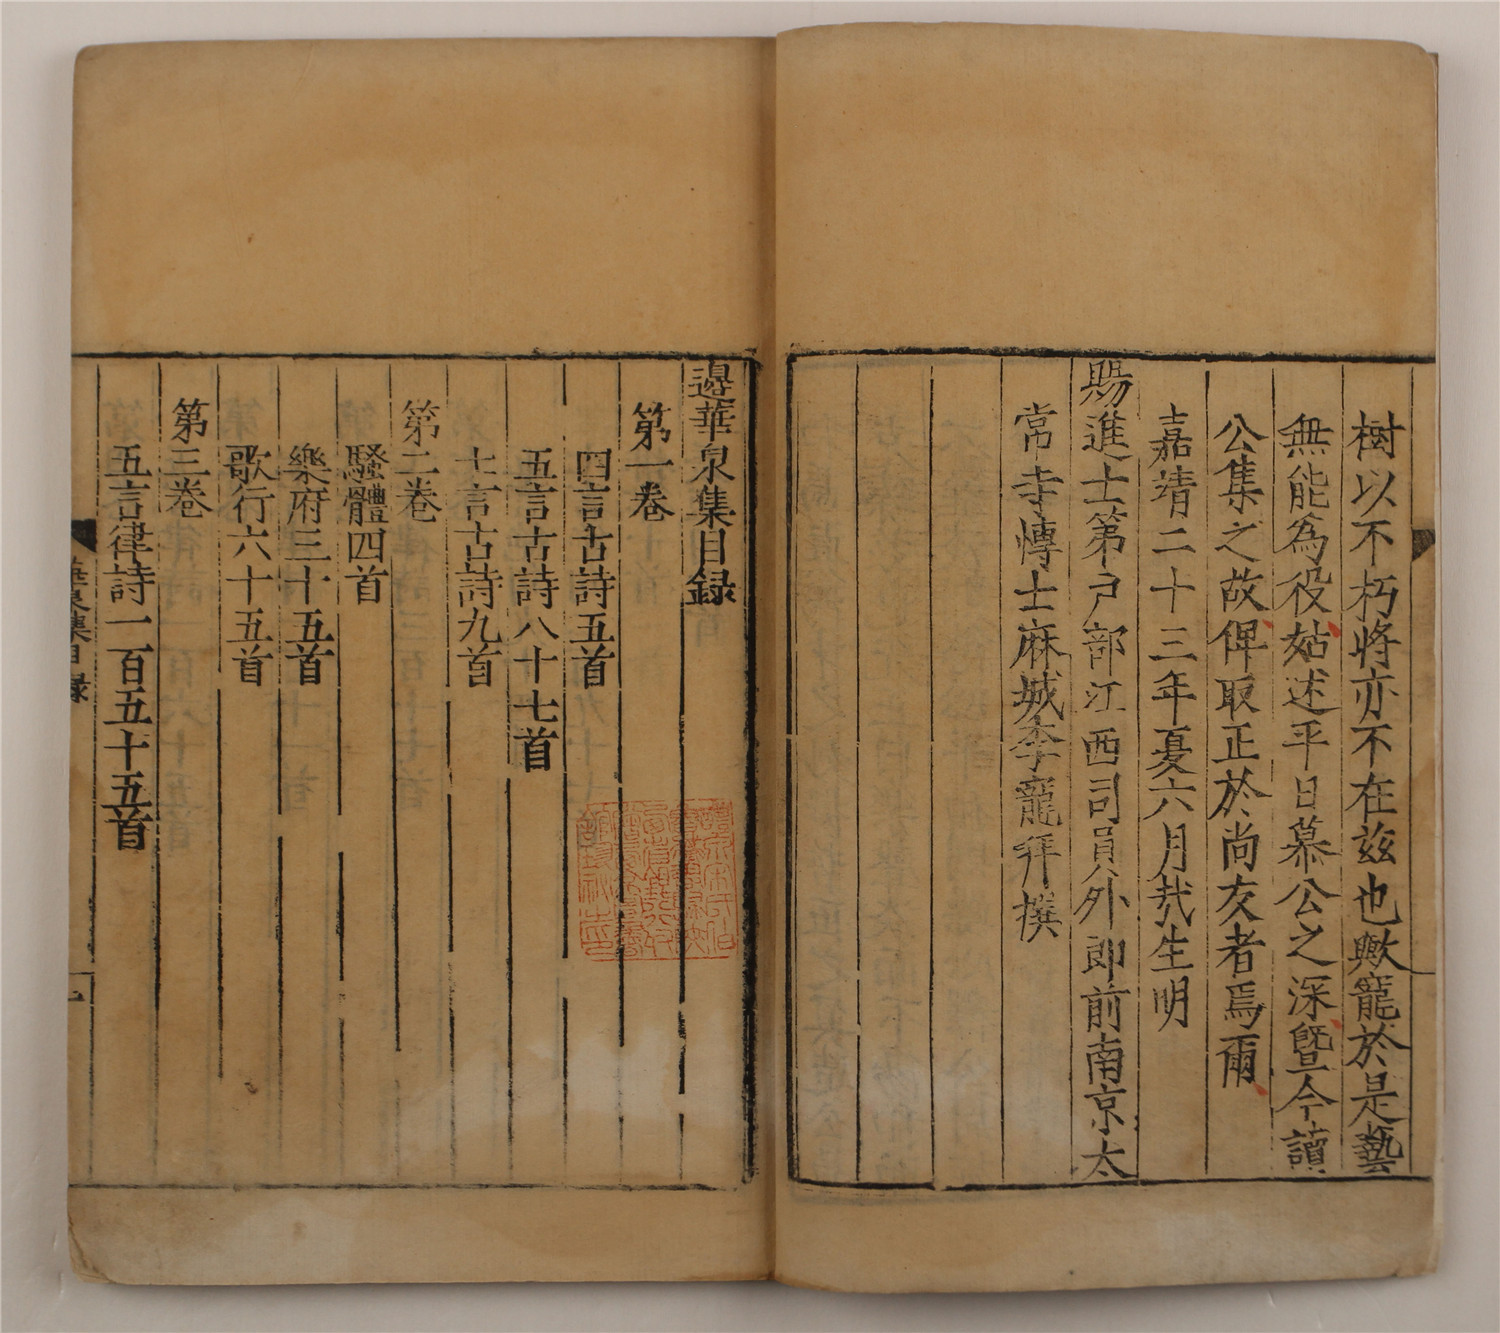 樹以不朽將亦不在兹也歟寵於是藝
無能為役姑述平日慕公之深暨今讀
公集之故俾取正於尚友者焉爾
嘉靖二十三年夏六月哉生明
賜進士第户部江西司員外郎前南京太
常寺博士麻城李寵拜撰
邊華泉集目録
第一卷
四言古詩五首
五言古詩八十七首
七言古詩九首
第二卷
騷體四首
樂府三十五首
歌行六十五首
第三卷
五言律詩一百五十五首
華泉集目録
一